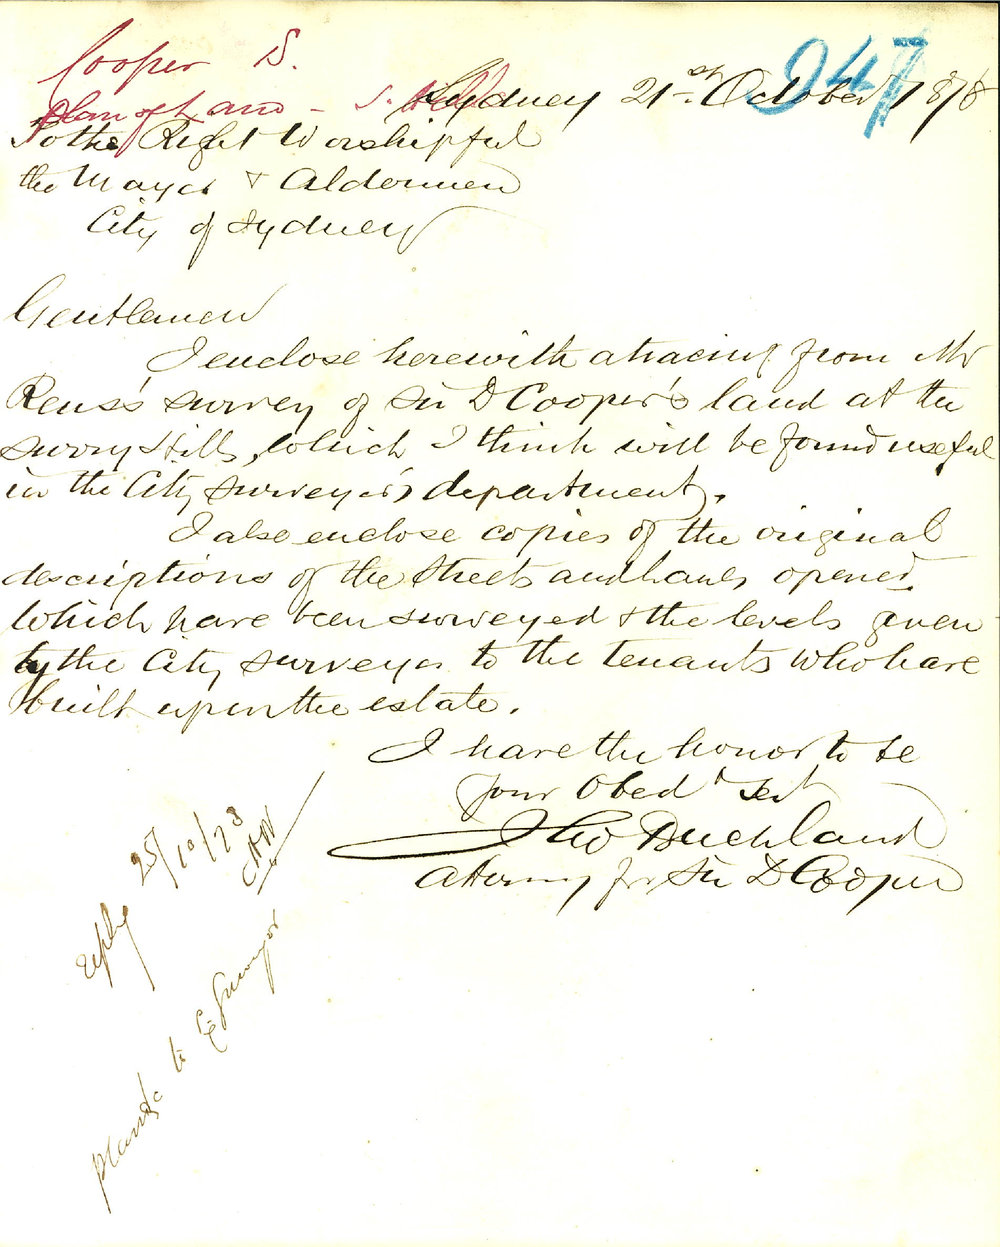 Cooper D.
Plan of Land - S. Hills
947
Sydney 21st October 1878
To the Right Worshipful
the Mayor & Aldermen
City of Sydney
Gentlemen
I enclose herewith a tracing from Mr
Reuss's survey of Sir D Cooper's land at the
Surry Hills, which I think will be found useful
in the City Surveyor's department.
I also enclose copies of the original
descriptions of the Streets and Lanes opened
which have been surveyed & the levels given
by the City Surveyor to the tenants who have
built upon the estate.
I have the honor to be
your Obedt Servt
Buckland
Attorney for Sir D Cooper
reply 25/10/78
Plans &c to Cy Surveyor